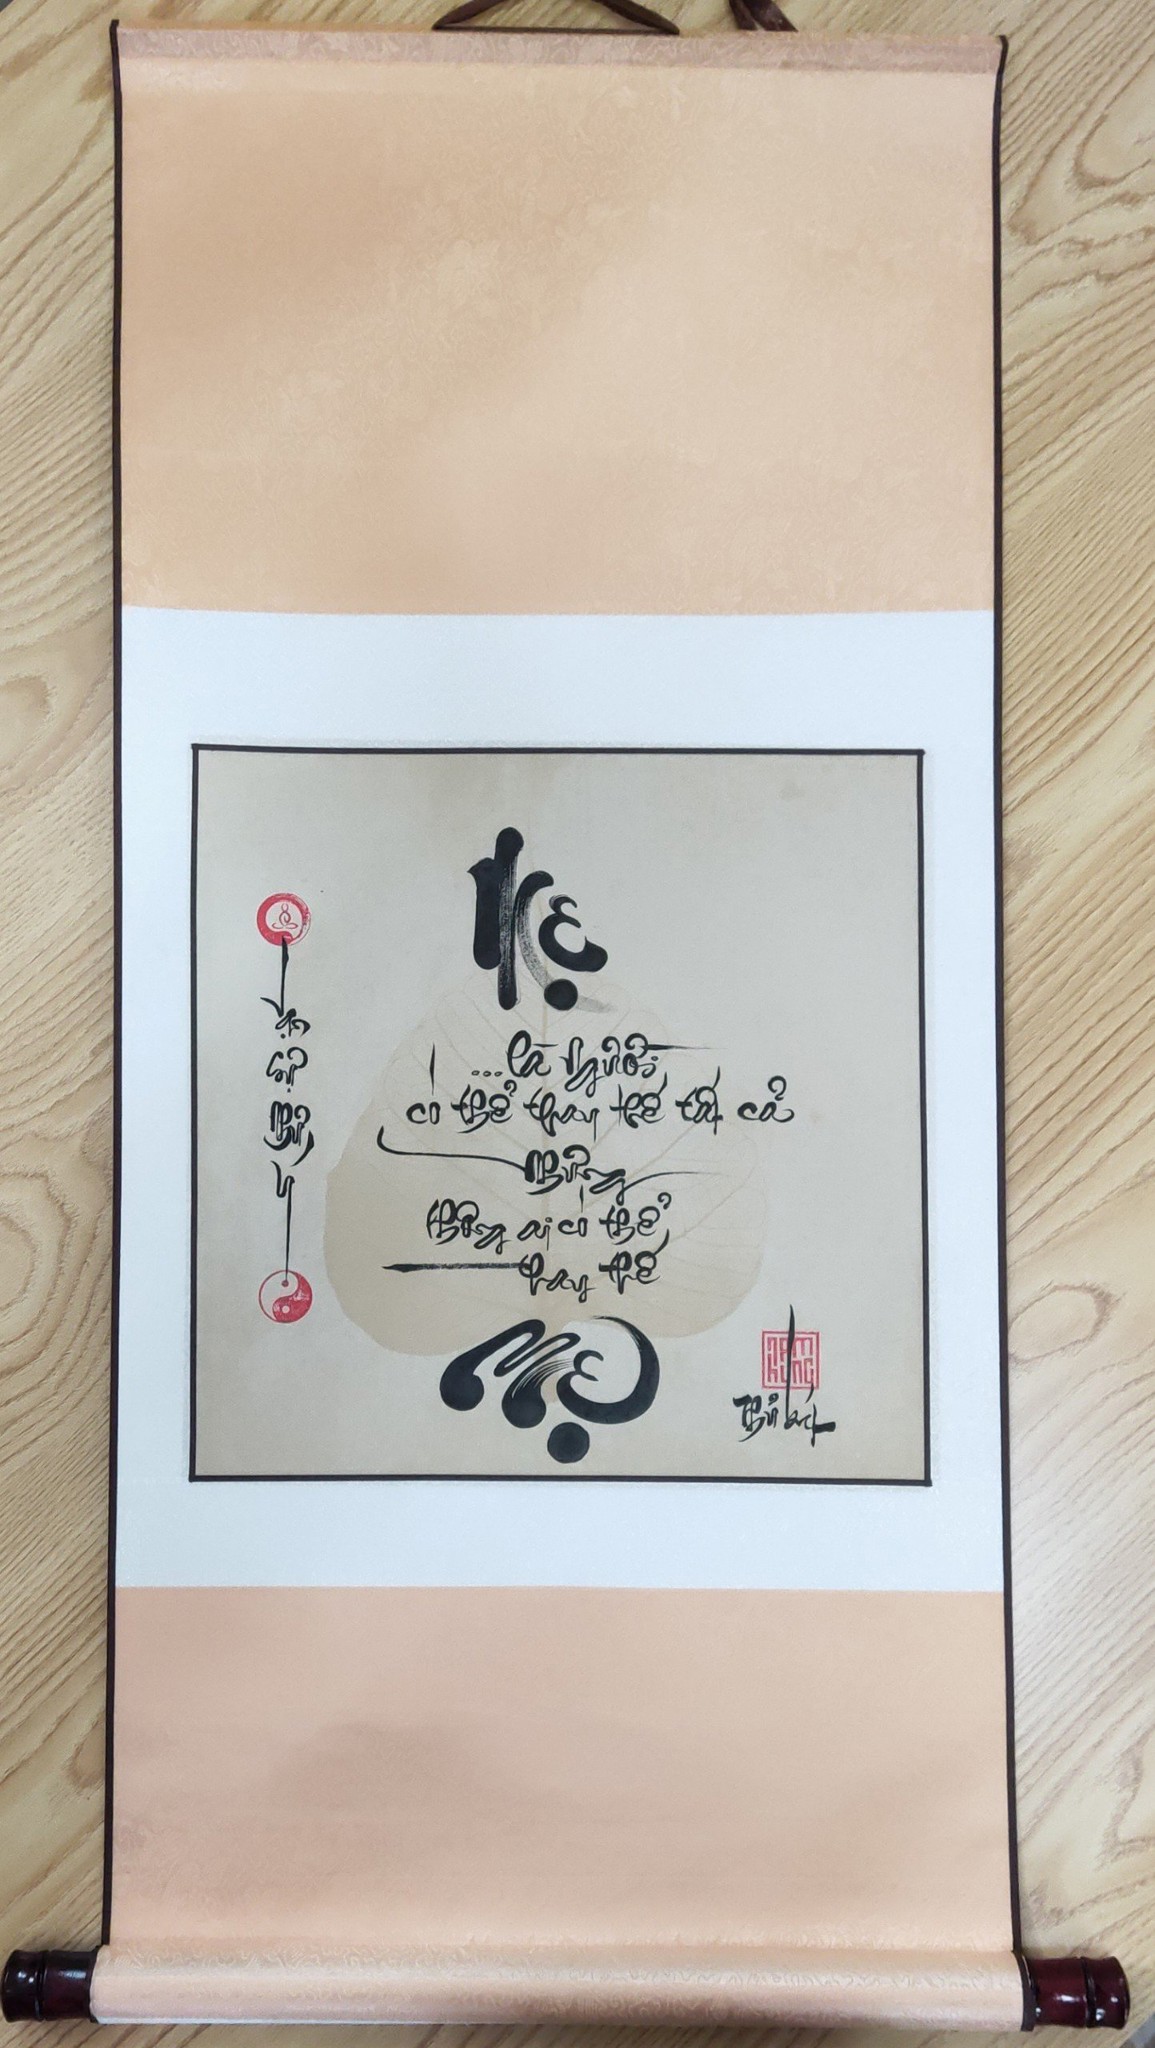 Mẹ
...là người
có thể thay thế tất cả
nhưng
không ai có thể
thay thế
Mẹ